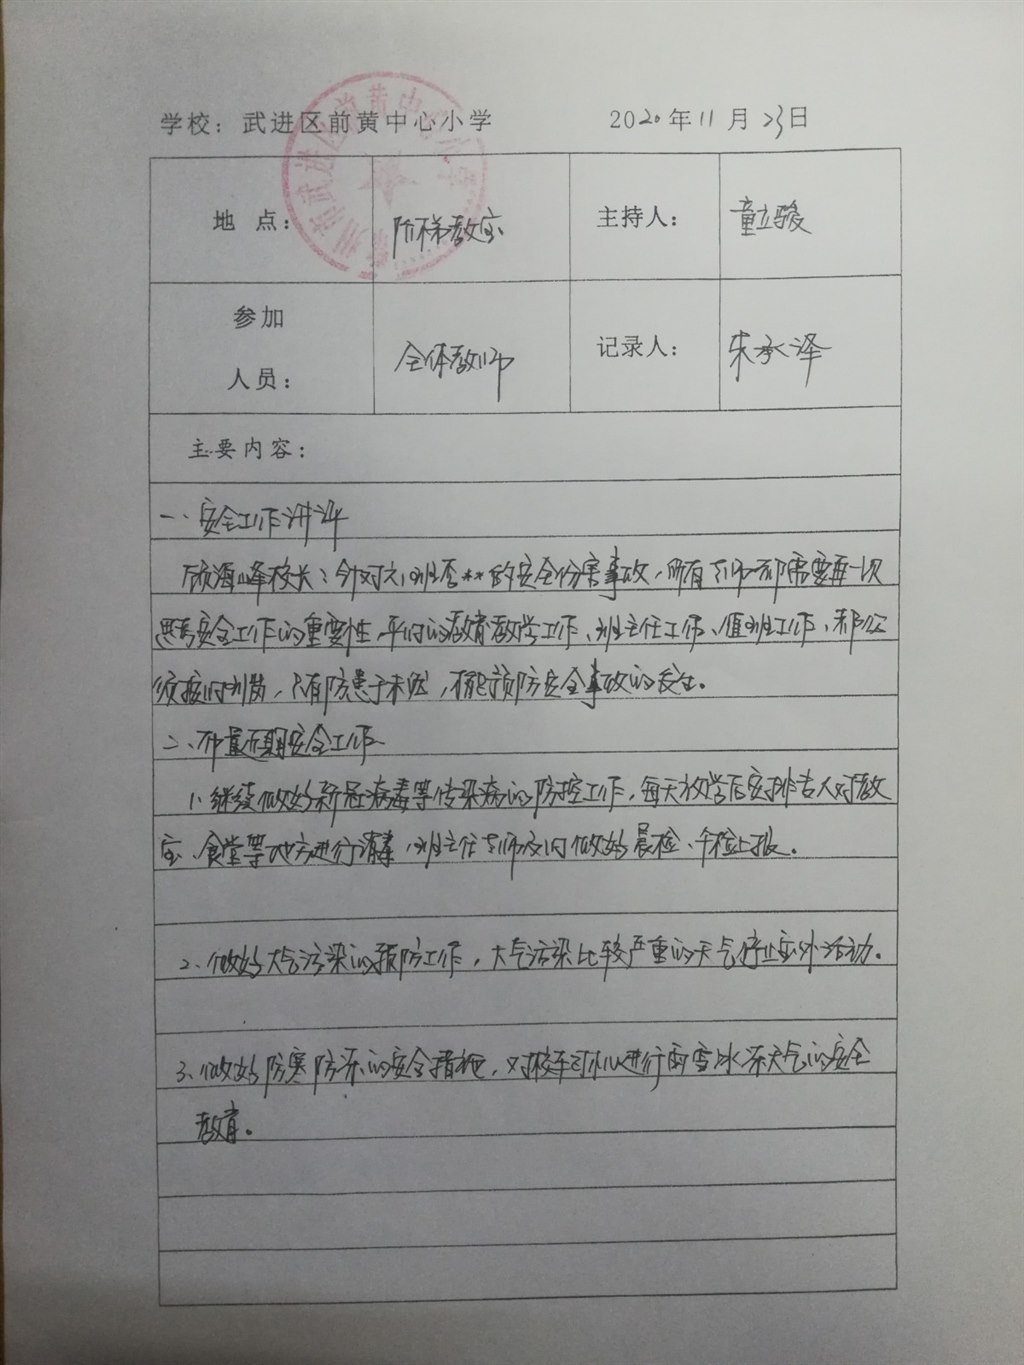 学校：武进区前黄中心小学 2020年11月23日
地 点： 阶梯教室 主持人： 童立骏
参加
人员： 全体教师 记录人： 朱承泽
主要内容：
一、安全工作讲评
海峰校长：针对六 班 ** 的安全伤害事故，所有 师都需要再一次
安全工作的重要性，平时的教育教学工作、班主任工作、值班工作，都必
须按时到岗，只有防患于未然，才能预防安全事故的发生。
二、布置近期安全工作
1、继续做好新冠病毒等传染病的防控工作，每天放学后安排专人对教
室、食堂等地方进行消毒，班主任老师及时做好晨检、午检上报。
2、做好大气污染的预防工作，大气污染比较严重的天气停止室外活动。
3、做好防寒防冻的安全措施，对校车司机进行雨雪冰冻天气的安全
教育。